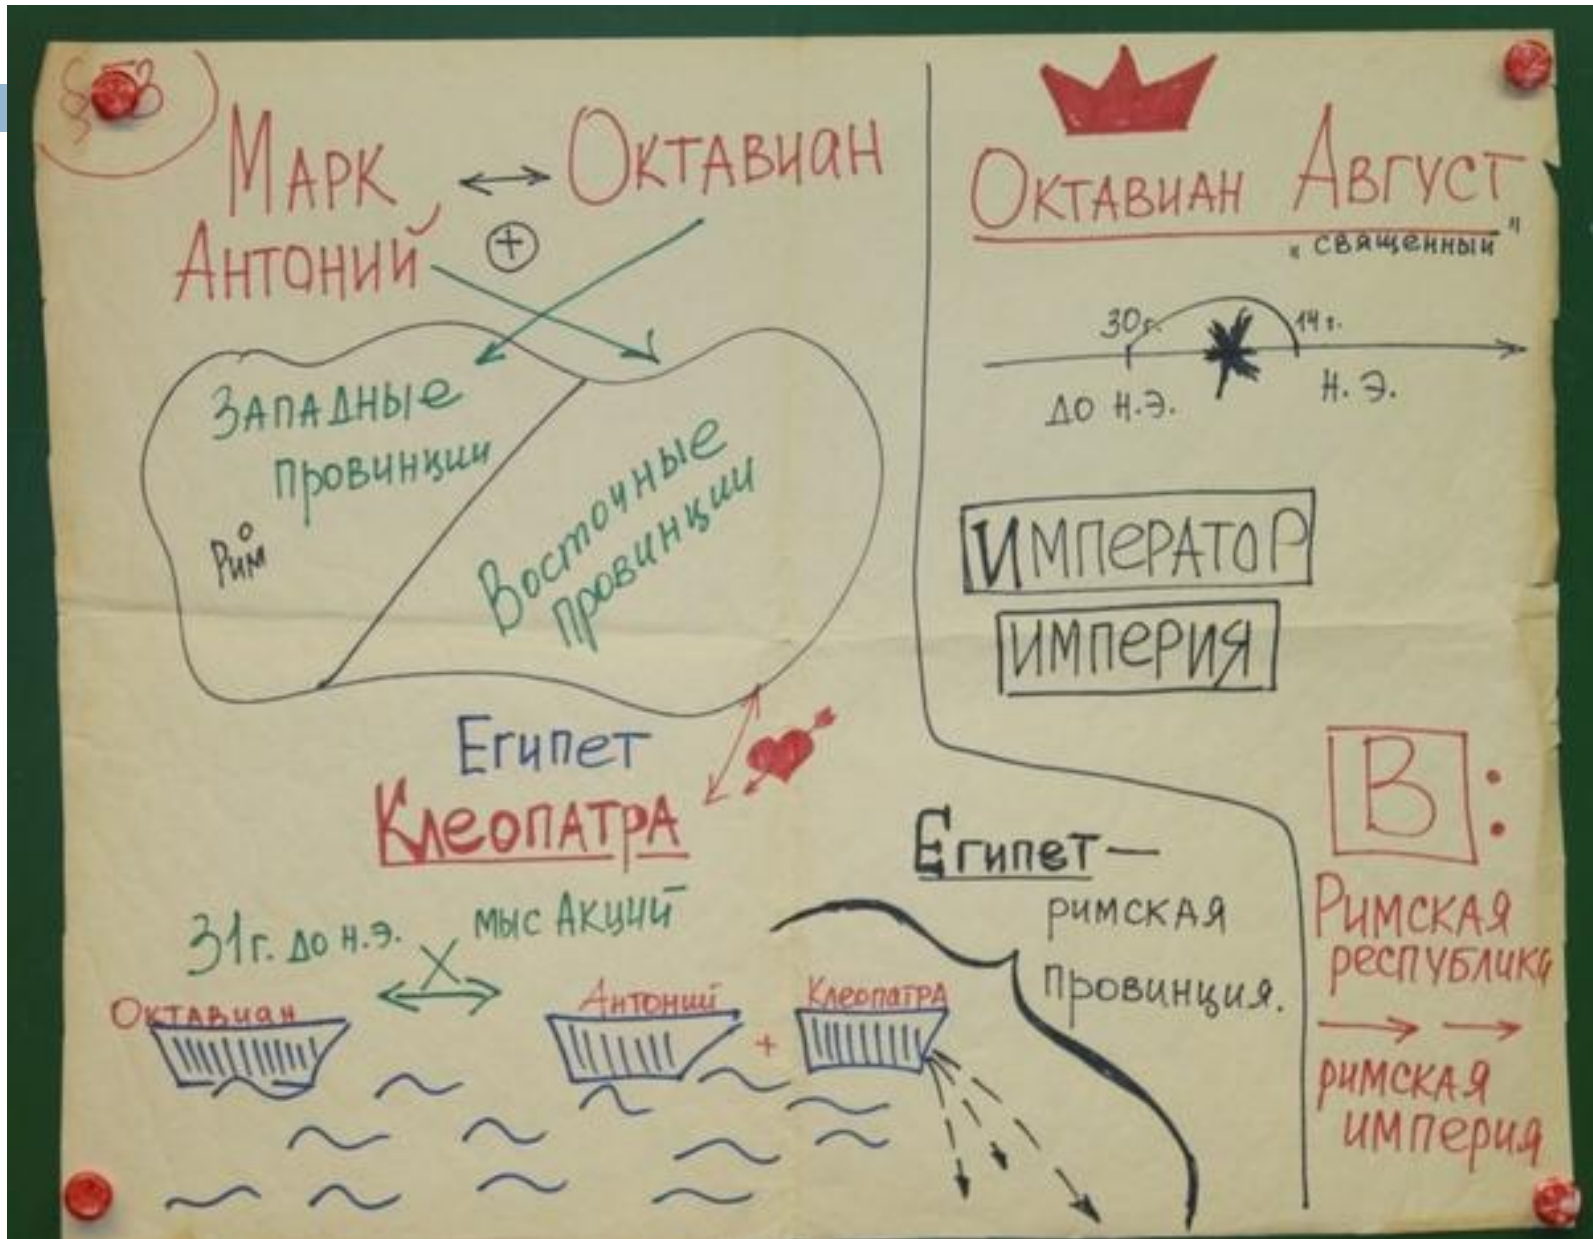 §53
Марк
Антоний
Октавиан
+
Западные
провинции
Рим
Восточные
провинции
Египет
Клеопатра
31г. до н.э.
мыс Акций
Октавиан
Антоний
+
Клеопатра
Египет —
римская
провинция.
Октавиан Август
"священный"
30г.
14г.
до н.э.
н.э.
Император
империя
В:
Римская
республика
римская
империя